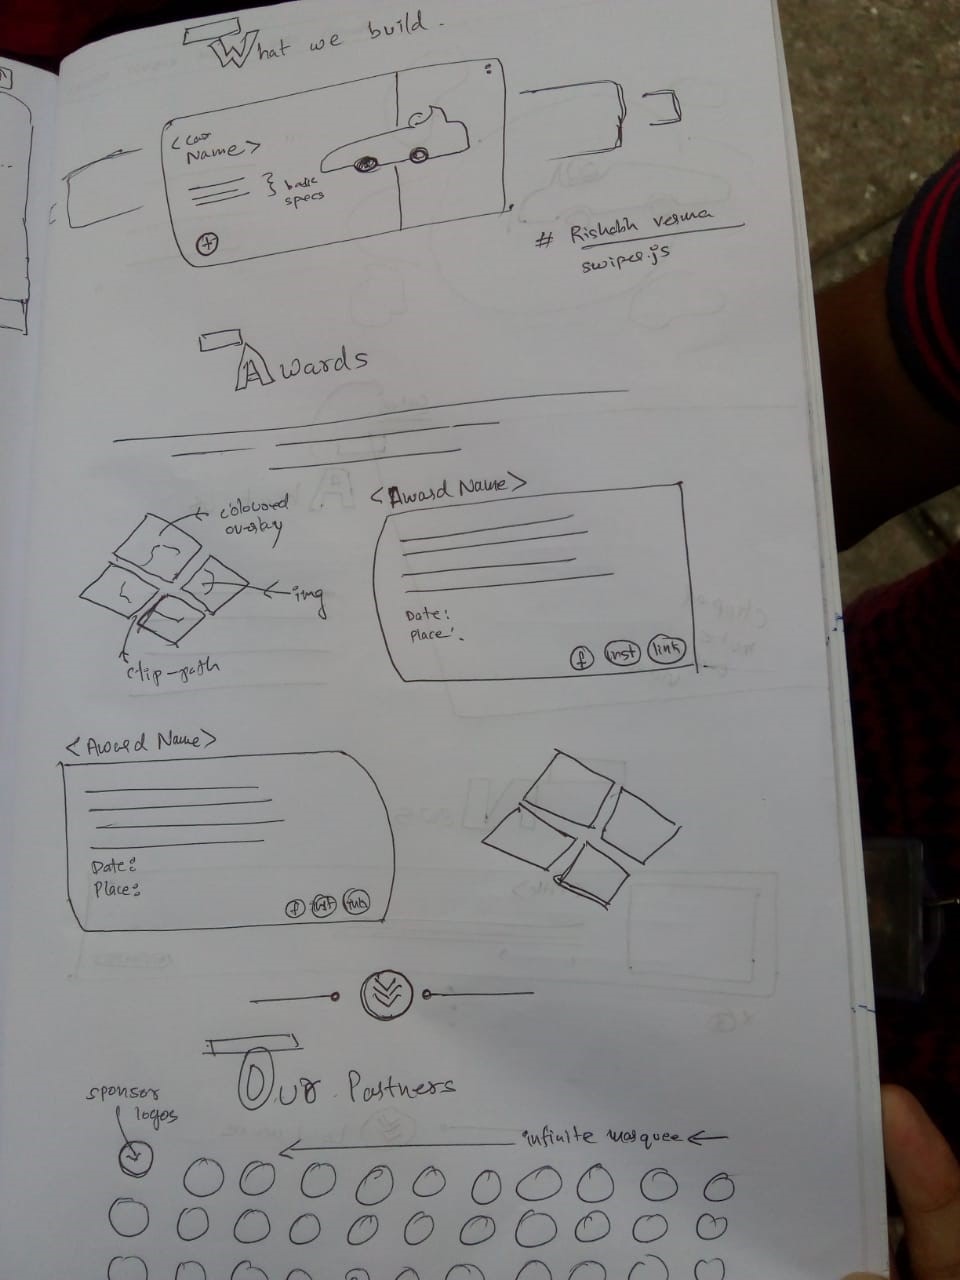 What we build.
<Car
Name>
basic
specs
# Rishabh verma
swiper.js
Awards
coloured
overlay
img
clip-path
<Award Name>
Date:
Place:
f inst link
<Award Name>
Date:
Place:
f inst link
Our Partners
sponsor
logos
infinite marquee